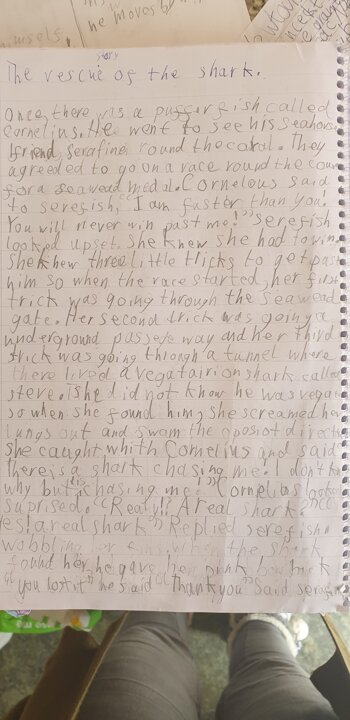 he moves b
himself.
story
The rescue of the shark.
Once, there was a pufferfish called
Cornelius. He went to see his seahorse
friend, serafine round the coral. They
agreed to go on a race round the
for a seawead medal. Cornelous said
to serefish, "I am faster than you.
You will never win past me!" serefish
looked upset. She knew she had to win
She knew three little tricks to get past
him so when the race started, her first
trick was going through the seawead
gate. Her second trick was going a
underground passege way and her third
trick was going through a tunnel where
there lived a vegatairion shark called
steve. She did not know he was vegat
so when she found him, she screamed her
lungs out and swam the oposit directi
she caught whith Cornelius and said
there is a shark chasing me. I don't k
why but its chasing me." Cornelius look
suprised. "Realy!? A real shark?"
"es, a real shark" Replied serefish
wobbling her fins. When the shark
found her, he gave her pink bow back
"you lost it" he said "Thank you" Said serefi